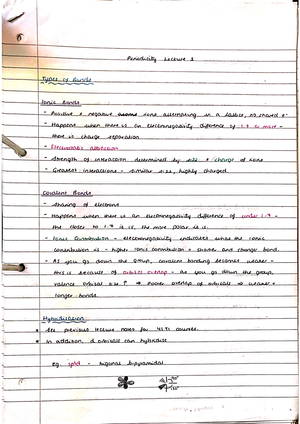 Periodicity Lecture 1
Types of Bonds
Ionic Bonds
- Positive & negative ions alternating in a lattice, no shared e⁻
- Happens when there is an electronegativity difference of 1.7 or more -
there is charge separation
- Electrostatic attraction
- Strength of interaction determined by size & charge of ions
- Greatest interactions - similar size, highly charged.
Covalent Bonds
- Sharing of electrons
- Happens when there is an electronegativity difference of under 1.7 -
the closer to 1.7 it is, the more polar it is.
- Ionic Contribution - electronegativity indicates what the ionic
contribution is - higher ionic contribution = shorter and stronger bond.
- As you go down the group, covalent bonding becomes weaker -
this is because of orbital overlap - as you go down the group,
valence orbital size ↑ ⇒ poorer overlap of orbitals ⇒ weaker &
longer bonds.
Hybridisation
* See previous lecture notes for courses.
* In addition, d orbitals can hybridise
Eg. sp³d - trigonal bipyramidal